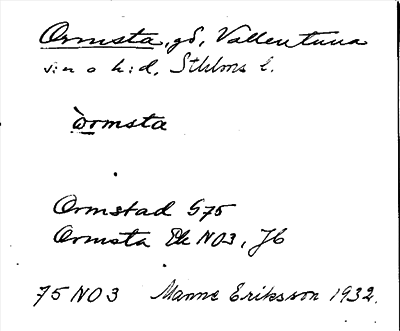 Ormsta, gd, Vallentuna
s:n o h:d, Sthlms l.
òrmsta
Ormstad G75
Ormsta Ek NO3, JC
75 NO 3 Manne Eriksson 1932.